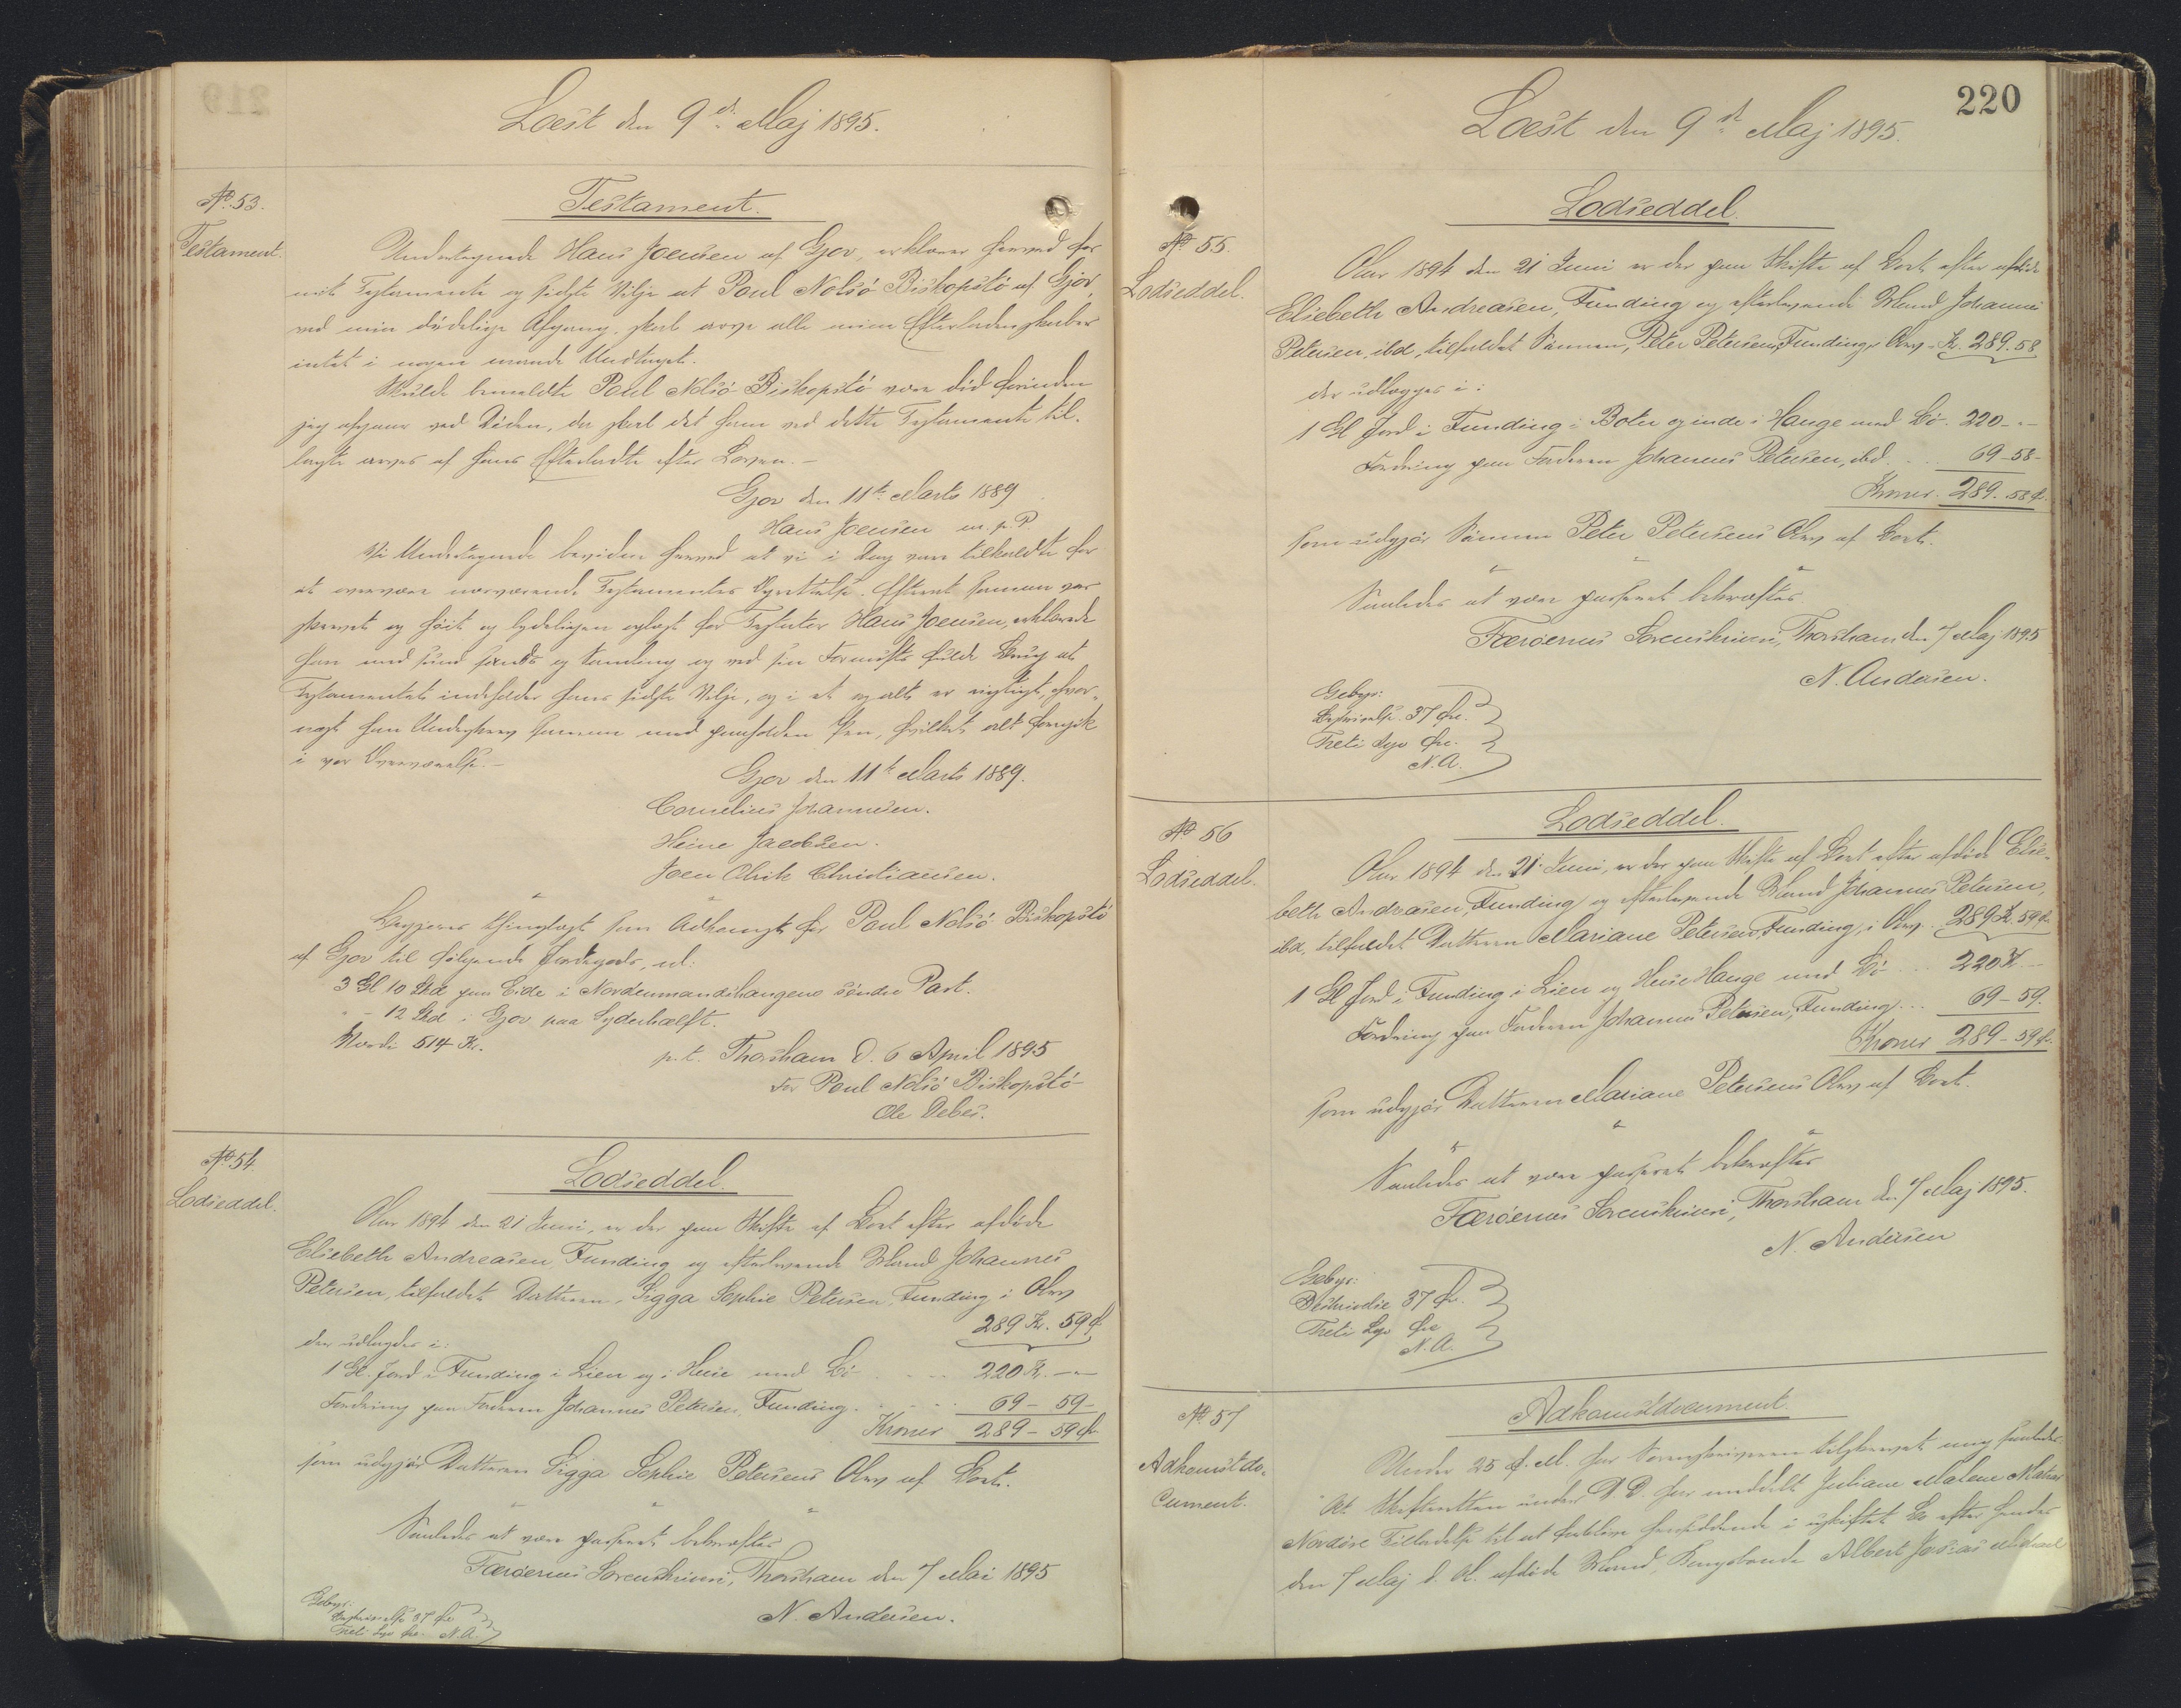 Læst den 9de Maj 1895.
No. 53.
Testament.
Testament.
Undertegnede Hans Joensen af Gjov, erklærer herved for
mit Testamente og sidste Vilje at Poul Nolsö Biskopstö af Gjov,
ved min dödelige Afgang, skal arve alle mine Efterladenskaber
intet i nogen maade Undtaget.
Skulde bemeldte Poul Nolsö Biskopstö være död forinden
jeg afgaar ved Döden, da skal det ham ved dette Testamente til-
lagte arves af hans Efterladte efter Loven. –
Gjov den 11te Marts 1889
Hans Joensen m. p. P.
Vi Undertegnede bevidne herved at vi i Dag vare tilkaldte for
at overvære nærværende Testamentes Oprettelse. Efterat samme var
skrevet og höit og lydeligen oplæst for Testator Hans Joensen, erklærede
han med sund Sands og Samling og ved sin Fornufts fulde Brug at
Testamentet indeholder hans sidste Vilje, og i et og alt er rigtigt, hvor-
næst han Underskrev samme med paaholden Pen, hvilket alt foregik
i vor Overværelse. –
Gjov den 11te Marts 1889.
Cornelius Johannesen.
Heine Jacobsen.
Joen Olrik Christiansen.
Begjæres thinglæst som Adkomst for Poul Nolsö Biskopstö
af Gjov til fölgende Jordegods, ul:
3 Gl 10 Skd paa Eide i Nordenmandshaugene söndre Part.
" – 12 Skd i Gjov paa Syderhælft.
Værdi 514 Kr.
p. t. Thorshavn d. 6 April 1895
For Poul Nolsö Biskopstö
Ole Debes.
No. 54.
Lodseddel.
Lodseddel.
Aar 1894 den 21 Juni, er der paa Skifte af Boet efter afdöde
Elsebeth Andreasen, Funding og efterlevende Mand Johannes
Petersen, tilfaldet Datteren, Sigga Sophie Petersen, Funding i Arv
289 Kr. 59 Ö.
der udlagdes i:
1 Gl. Jord i Funding i Lien og i Huse med Bö . . . 220 Kr. – "
Fordring paa Faderen Johannes Petersen, Funding . . . . 69 – 59 –
Kroner 289 – 59 Ö.
som udgjör Datteren Sigga Sophie Petersens Arv af Boet.
Saaledes at være passeret bekræftes
Færöernes Sorenskriveri, Thorshavn den 7 Mai 1895
N. Andersen.
Gebyr:
Beskrivelse 37 Öre
Treti Syv Öre. N.A.
220
Læst den 9de Maj 1895.
No 55.
Lodseddel.
Lodseddel.
Aar 1894 den 21 Juni er der paa Skifte af Boet efter afdöde
Elsebeth Andreasen, Funding og efterlevende Mand Johannes
Petersen, ibd, tilfaldet Sönnen, Peter Petersen, Funding i Arv – Kr. 289.58
der udlægges i:
1 Gl Jord i Funding i Boter og inde i Hauge med Bö. 220 – " –
Fordring paa Faderen Johannes Petersen, ibd . . . 69 – 58 –
Kroner. 289. 58 Ö.
som udgjör Sönnen Peter Petersens Arv af Boet.
Saaledes at være passeret bekræftes
Færöernes Sorenskriveri, Thorshavn den 7 Maj 1895
N. Andersen.
Gebyr:
Beskrivelse. 37 Öre.
Treti Syv Öre.
N.A.
No 56
Lodseddel.
Lodseddel.
Aar 1894 den 21 Juni, er der paa Skifte af Boet efter afdöde Else-
beth Andreasen, Funding og efterlevende Mand Johannes Petersen,
ibd, tilfaldet Datteren Mariane Petersen, Funding, i Arv . . 289 Kr. 59 Ö.
1 Gl Jord i Funding i Lien og Huse Hauge med Bö . . . 220 Kr. –
Fordring paa Faderen Johannes Petersen, Funding . . . 69 – 59.
Kroner 289 – 59 Ö.
som udgjör Datteren Mariane Petersens Arv af Boet.
Saaledes at være passeret bekræftes
Færöernes Sorenskriveri, Thorshavn den 7 Maj 1895.
N. Andersen
Gebyr:
Beskrivelse 37 Ör.
Treti Syv Öre
N.A.
No 57
Adkomstdo-
cument.
Adkomstdocument.
Under 25 f. M. har Sorenskriveren tilskrevet mig saaledes:
"At Skifteretten under D. D. har meddelt Juliane Malene
Tilladelse til at forblive hensiddende i uskiftet Bo efter hendes
den 7 Maj d. A. afdöde Mand, Kongsbonde Albert Josias Michael